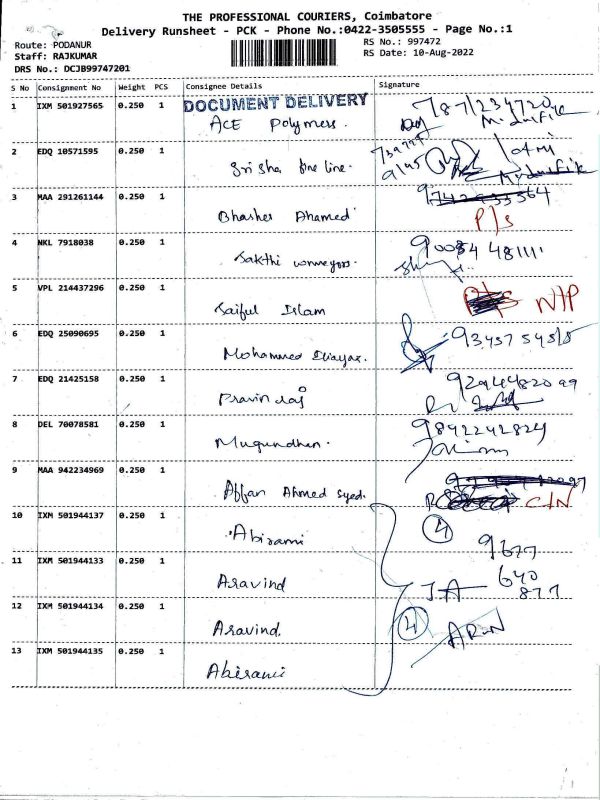 THE PROFESSIONAL COURIERS, Coimbatore
Delivery Runsheet - PCK - Phone No.:0422-3505555 - Page No.:1
Route: PODANUR
RS No.: 997472
Staff: RAJKUMAR
RS Date: 10-Aug-2022
DRS No.: DCJB99747201
S No Consignment No Weight PCS Consignee Details Signature
DOCUMENT DELIVERY
1 IXM 501927565 0.250 1 ACE Polymers.
2 EDQ 10571595 0.250 1 Sri sha fine line.
3 MAA 291261144 0.250 1 Bhasher Ahamed
P/s
4 NKL 7918038 0.250 1 Sakthi conveyors. 90084 481111
5 VPL 214437296 0.250 1 Saiful Islam N/P
6 EDQ 25090695 0.250 1 Mohammed
7 EDQ 21425158 0.250 1 Pravin raj
8 DEL 70078581 0.250 1 Mugundhan. 9842242824
9 MAA 942234969 0.250 1 Affan Ahmed Syed. C/N
10 IXM 501944137 0.250 1 Abirami 4
9677
11 IXM 501944133 0.250 1 Aravind 640
877
12 IXM 501944134 0.250 1 Aravind. 4 ARUN
13 IXM 501944135 0.250 1 Abirami